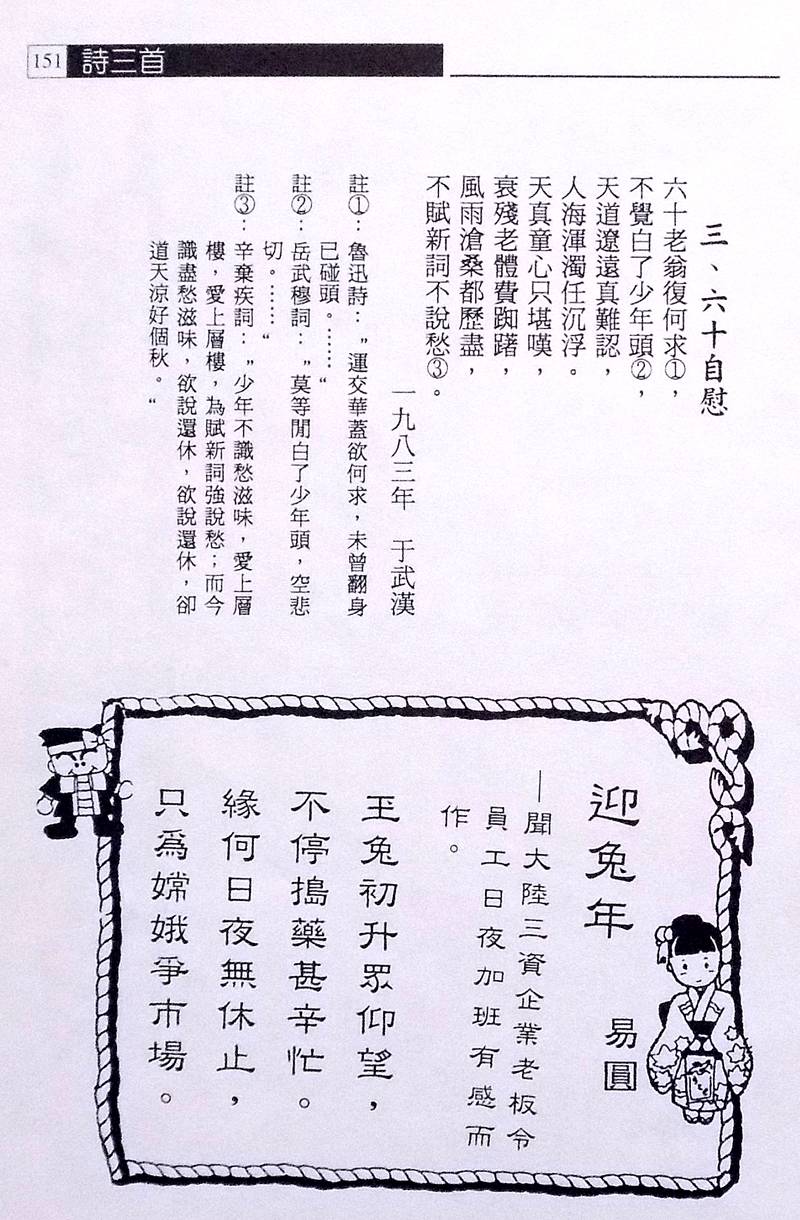 151 詩三首
三、六十自慰
六十老翁復何求①，
不覺白了少年頭②，
天道遼遠真難認，
人海渾濁任沉浮。
天真童心只堪嘆，
衰殘老體費踟躇，
風雨滄桑都歷盡，
不賦新詞不說愁③。
一九八三年　于武漢
註①：魯迅詩：〞運交華蓋欲何求，未曾翻身
已碰頭。……〝
註②：岳武穆詞：〞莫等閒白了少年頭，空悲
切。……〝
註③：辛棄疾詞：〞少年不識愁滋味，愛上層
樓，愛上層樓，為賦新詞強說愁；而今
識盡愁滋味，欲說還休，欲說還休，卻
道天涼好個秋。〝
迎兔年
易圓
—聞大陸三資企業老板令
員工日夜加班有感而
作。
玉兔初升眾仰望，
不停搗藥甚辛忙。
緣何日夜無休止，
只爲嫦娥爭市場。